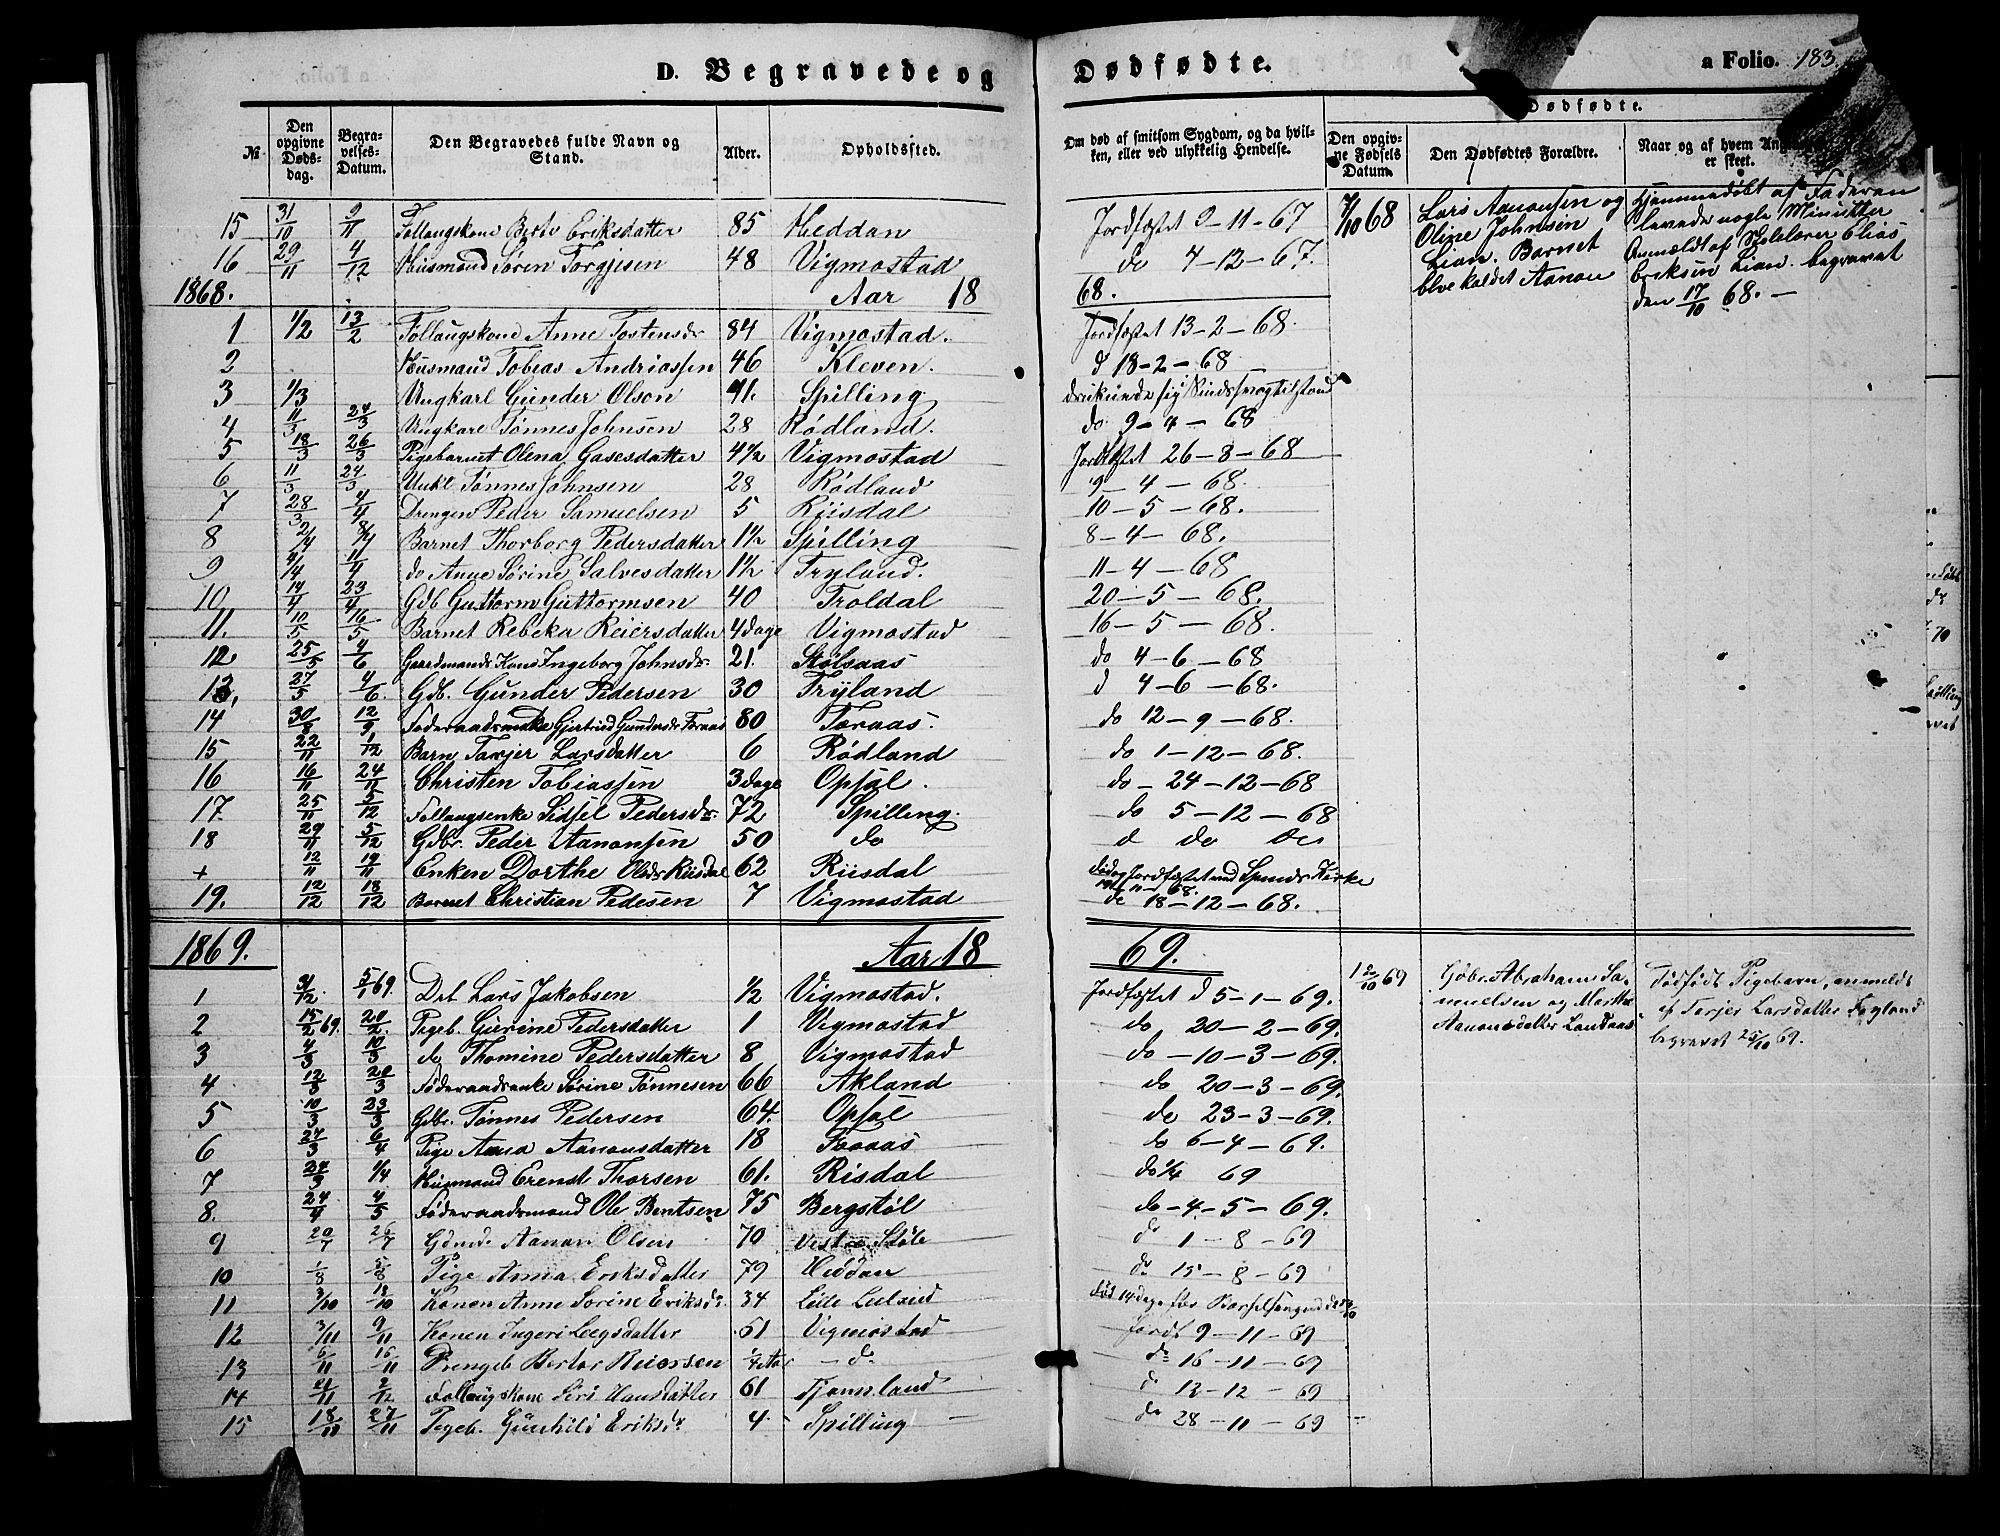 D. Begravede og Dødfødte. a Folio. 183.
Dødfødte.
№ Den opgivne Dødsdag. Begravelses-Datum. Den Begravedes fulde Navn og Stand. Alder. Opholdssted. Om død af smitsom Sygdom, og da hvilken, eller ved ulykkelig Hendelse. Den opgivne Fødsels Datum. Den Dødfødtes Forældre. Naar og af hvem An er skeet.
15 31/10 2/11 Follaugskone Berte Eriksdatter 85 Heddan Jordfæstet 2-11-67
16 29/11 4/12 Husmand Søren Torgjesen 48 Vigmostad do 4-12-67.
7/10 68 Lars Aanonsen og Oline Johnsen Lian. Barnet blve kaldet Aanon
Hjemmedøbt af Faderen levede nogle Minutter Anmeldt af Skolelærer Elias Eriksen Lian. begravet den 17/10 68. —
1868. Aar 18 68.
1 1/2 13/2 Follaugskone Anne Tostensdr 84 Vigmostad. Jordfæstet 13-2-68.
2 Husmand Tobias Andriassen 46 Kleven. d 18-2-68
3 1/3 Ungkarl Gunder Olson 41. Spilling druknede sig i Sindssvagtilstand
4 11/3 24/3 Ungkarl Tønnes Johnsen 28 Rødland. do 9-4-68
5 18/3 26/3 Pigebarnet Olena Gasesdatter 4½ Vigmostad Jordfæstet 26-3-68
6 11/3 24/3 Unkl Tønnes Johnsen 28 Rødland 9-4-68.
7 28/3 4/4 Drengen Peder Samuelsen 5 Riisdal 10-5-68.
8 2/4 8/4 Barnet Thorborg Pedersdatter 1½ Spilling 8-4-68.
9 4/4 11/4 do Anne Sørine Salvesdatter 1½ Tryland. 11-4-68
10 14/4 23/4 Gdb Guttorm Guttormsen 40 Troldal 20-5-68.
11. 10/5 16/5 Barnet Rebekka Reiersdatter 4 dage Vigmostad 16-5-68.
12 25/5 4/6 Gaardmands Kone Ingeborg Johnsdr. 21. Stølsaas do 4-6-68
13, 27/5 4/6 Gdb. Gunder Pedersen 30 Tryland d 4-6-68.
14 30/8 12/9 Føderaadsenke Gjertrud Gundersdr Foraas 80 Foraas. do 12-9-68.
15 22/11 1/12 Barn Tarjer Larsdatter 6 Rødland do 1-12-68.
16 16/11 24/11 Christen Tobiassen 3 dage Opsal. do 24-12-68
17 25/11 5/12 Follaugsenke Sidsel Pedersdr. 72 Spilling. do 5-12-68
18 29/11 5/12 Gdbr. Peder Aanonsen 50 do d do do
+ 12/11 19/11 Enken Dorthe Olsdr Riisdal 62 Riisdal Jordfæstet ved Spinds Kirke 19-11-68.
19. 12/12 18/12 Barnet Christian Pedesen 7 Vigmostad do 18-12-68.
1869. Aar 18 69.
1 31/12 5/1 69. Drb Lars Jakobsen 1/2 Vigmostad. Jordfæstet d 5-1-69.
2 15/2 69. 20/2. Pigeb. Gurine Pedersdatter 1 Vigmostad do 20-2-69.
3 4/3 10/3 do Thomine Pedersdatter 8 Vigmostad do -10-3-69.
4 12/3 20/3 Føderaadsenke Sørine Tønnesen 66 Akland do 20-3-69.
5 10/3 23/3 Gdbr. Tønnes Pedersen 64. Opsal do 23-3-69.
6 27/3 6/4 Pige Anna Aanonsdatter 18 Foraas do 6-4-69.
7 24/3 1/4 Husmand Erenst Thorsen 61. Risdal do 1/4 69
8. 24/4 4/5 Føderaadsmand Ole Bentsen 75 Bergstøl do -4-5-69.
9 20/7 26/7 Gdmd. Aanon Olsen 70 Vestre Støle do 1-8-69
10 1/8 5/8 Pige Anna Eriksdatter 79 Heddan do 15-8-69
11 3/10 13/10 Konen Anne Sørine Eriksdr. 34 Lille Leland Død 14 dage før Barselsengen
12 3/11 9/11 Konen Ingeri Leegsdatter 61 Vigmostad Jordf 9-11-69
13 6/11 16/11 Drengeb Bertar Reiersen 1/4 Aar — do do 16-11-69
14 21/11 2/12 Follaugskone Siri Hansdatter 61 Tjomland do 12-12-69
15 18/11 27/11 Pigeb. Gunhild Eriksdr 4. Spilling do 28-11-69
12/10 69 Gdbr. Abraham Samuelsen og Marthe Aanonsdatter Landaas
Dødfødt Pigebarn, anmeldt af Tarjer Larsdatter Fagland begravet 25/10 69.